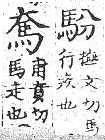 馚
撫文切馬
行疾也
甫賁切
馬走也